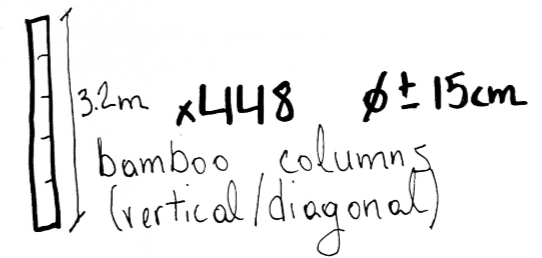 3.2m x448 ϕ ± 15cm
bamboo columns
(vertical/diagonal)